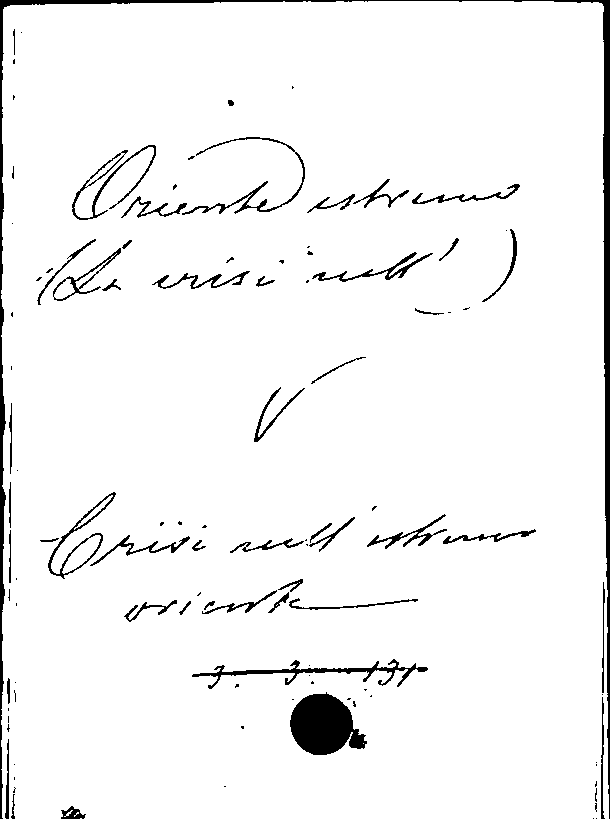 Oriente estremo
(La crisi nell')
V
Crisi nell'estremo
oriente
3. 3. 131